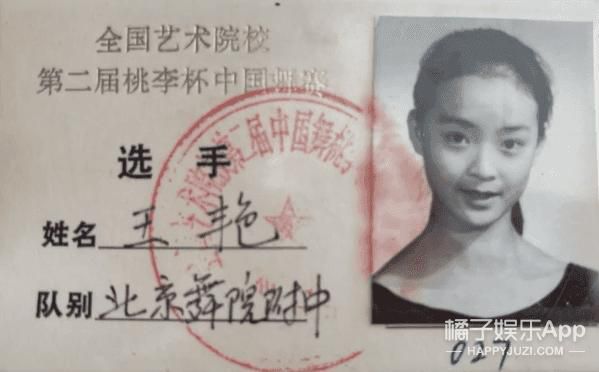 全国艺术院校
第二届桃李杯中国舞赛
选手
姓名 王艳
队别 北京舞院附中
027
橘子娱乐App
HAPPYJUZI.COM